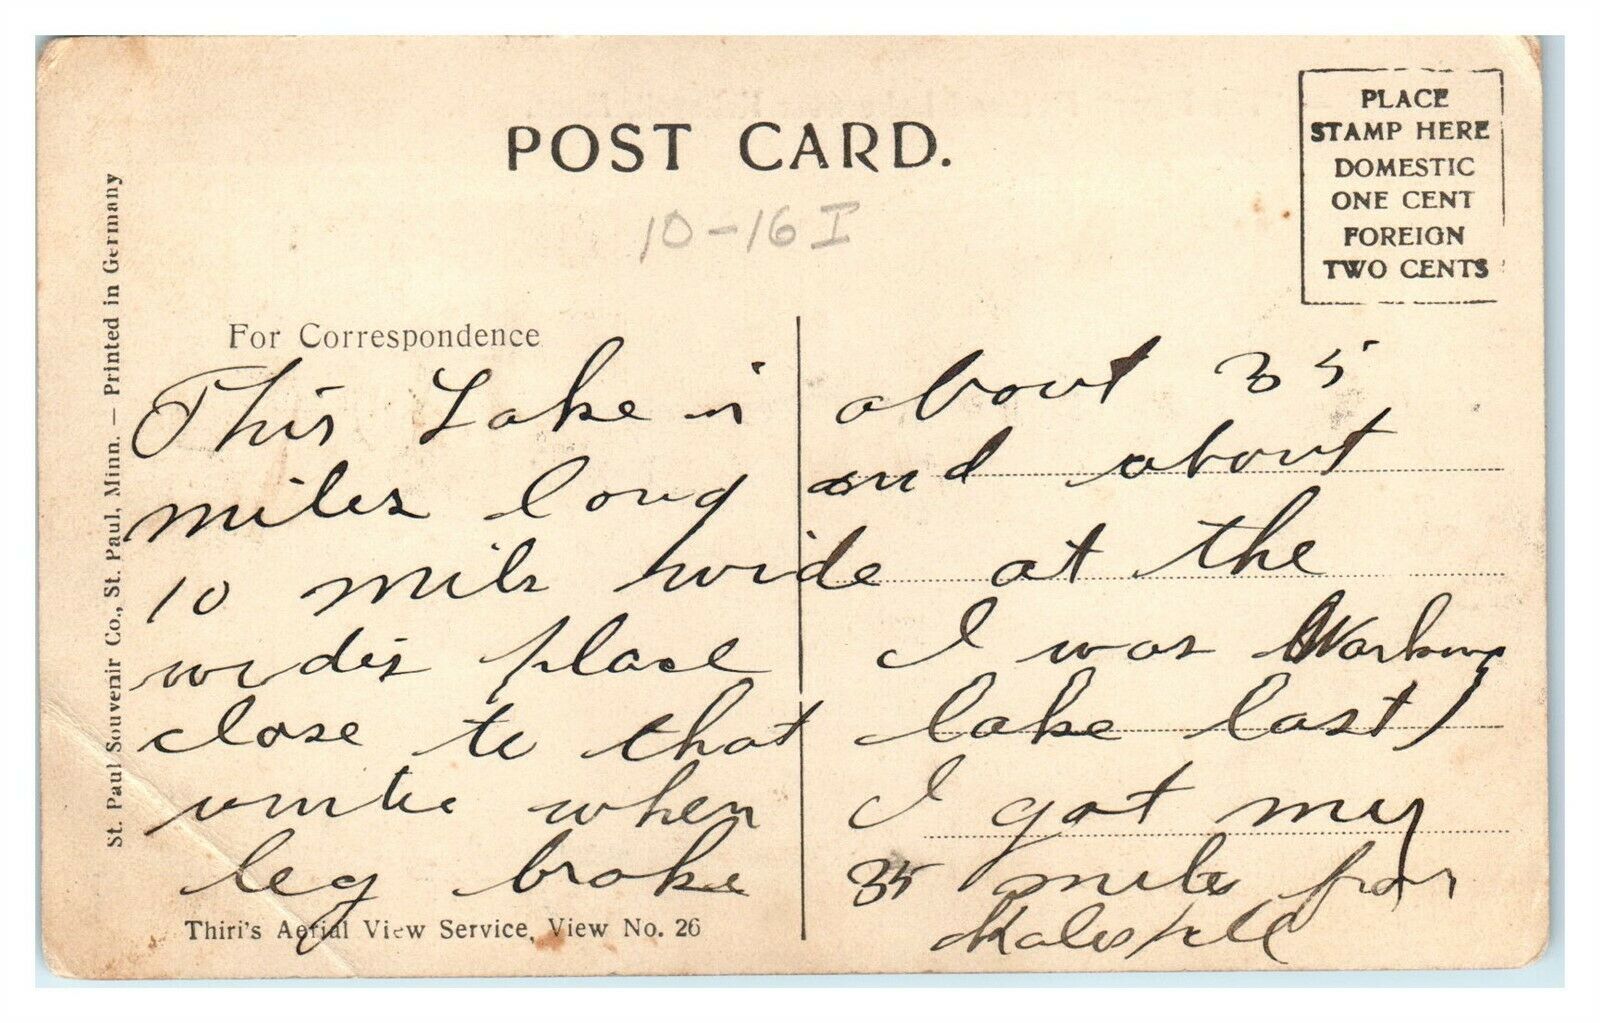 POST CARD.
PLACE
STAMP HERE
DOMESTIC
ONE CENT
FOREIGN
TWO CENTS
10-16 I
St. Paul Souvenir Co., St. Paul, Minn. — Printed in Germany
For Correspondence
This Lake is about 35
miles long and about
10 mils wide at the
wides place I was Working
close to that lake last
winter when I got my
leg broke 35 miles from
Kalespell
Thiri's Aerial View Service, View No. 26